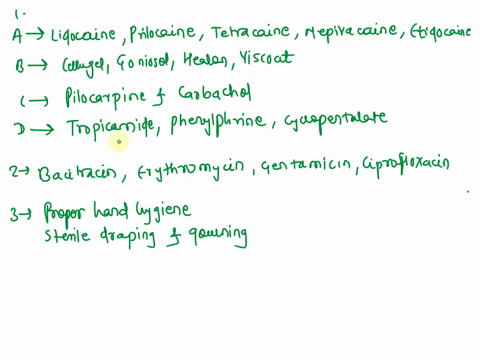 1.
A → Lidocaine, Prilocaine, Tetracaine, Mepivacaine, Etidocaine
B → Cellugel, Goniosol, Healon, Viscoat
C → Pilocarpine & Carbachol
D → Tropicamide, phenylphrine, cyclopentalate
2 → Bacitracin, Erythromycin, Gentamicin, Ciprofloxacin
3 → Proper hand hygiene
Sterile draping & gowning